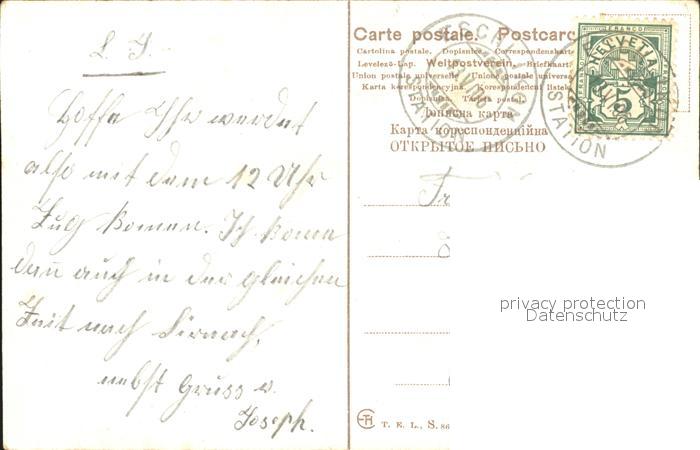 L. J.
Hoffe Ihr werdet
also mit dem 12 Uhr
Zug komen. Ich kome
dan̄ auch in der gleichen
Zeit nach Sirnach,
nebst Gruss v.
Joseph.
Carte postale. Postcard
Cartolina postale. Dopisnice. Correspondenskarte
Levelező-Lap. Weltpostverein. Briefkaart
Union postale universelle. Unione postale universa
Karta korespondencyjna. Korespondenční listek
Dopisnica. Tarjeta postal.
Дописна карта
Карта кореспонденційна
ОТКРЫТОЕ ПИСЬМО
HELVETIA
FRANCO
5
STATION
STATION
Fr
privacy protection
Datenschutz
T. E. L., S. 86